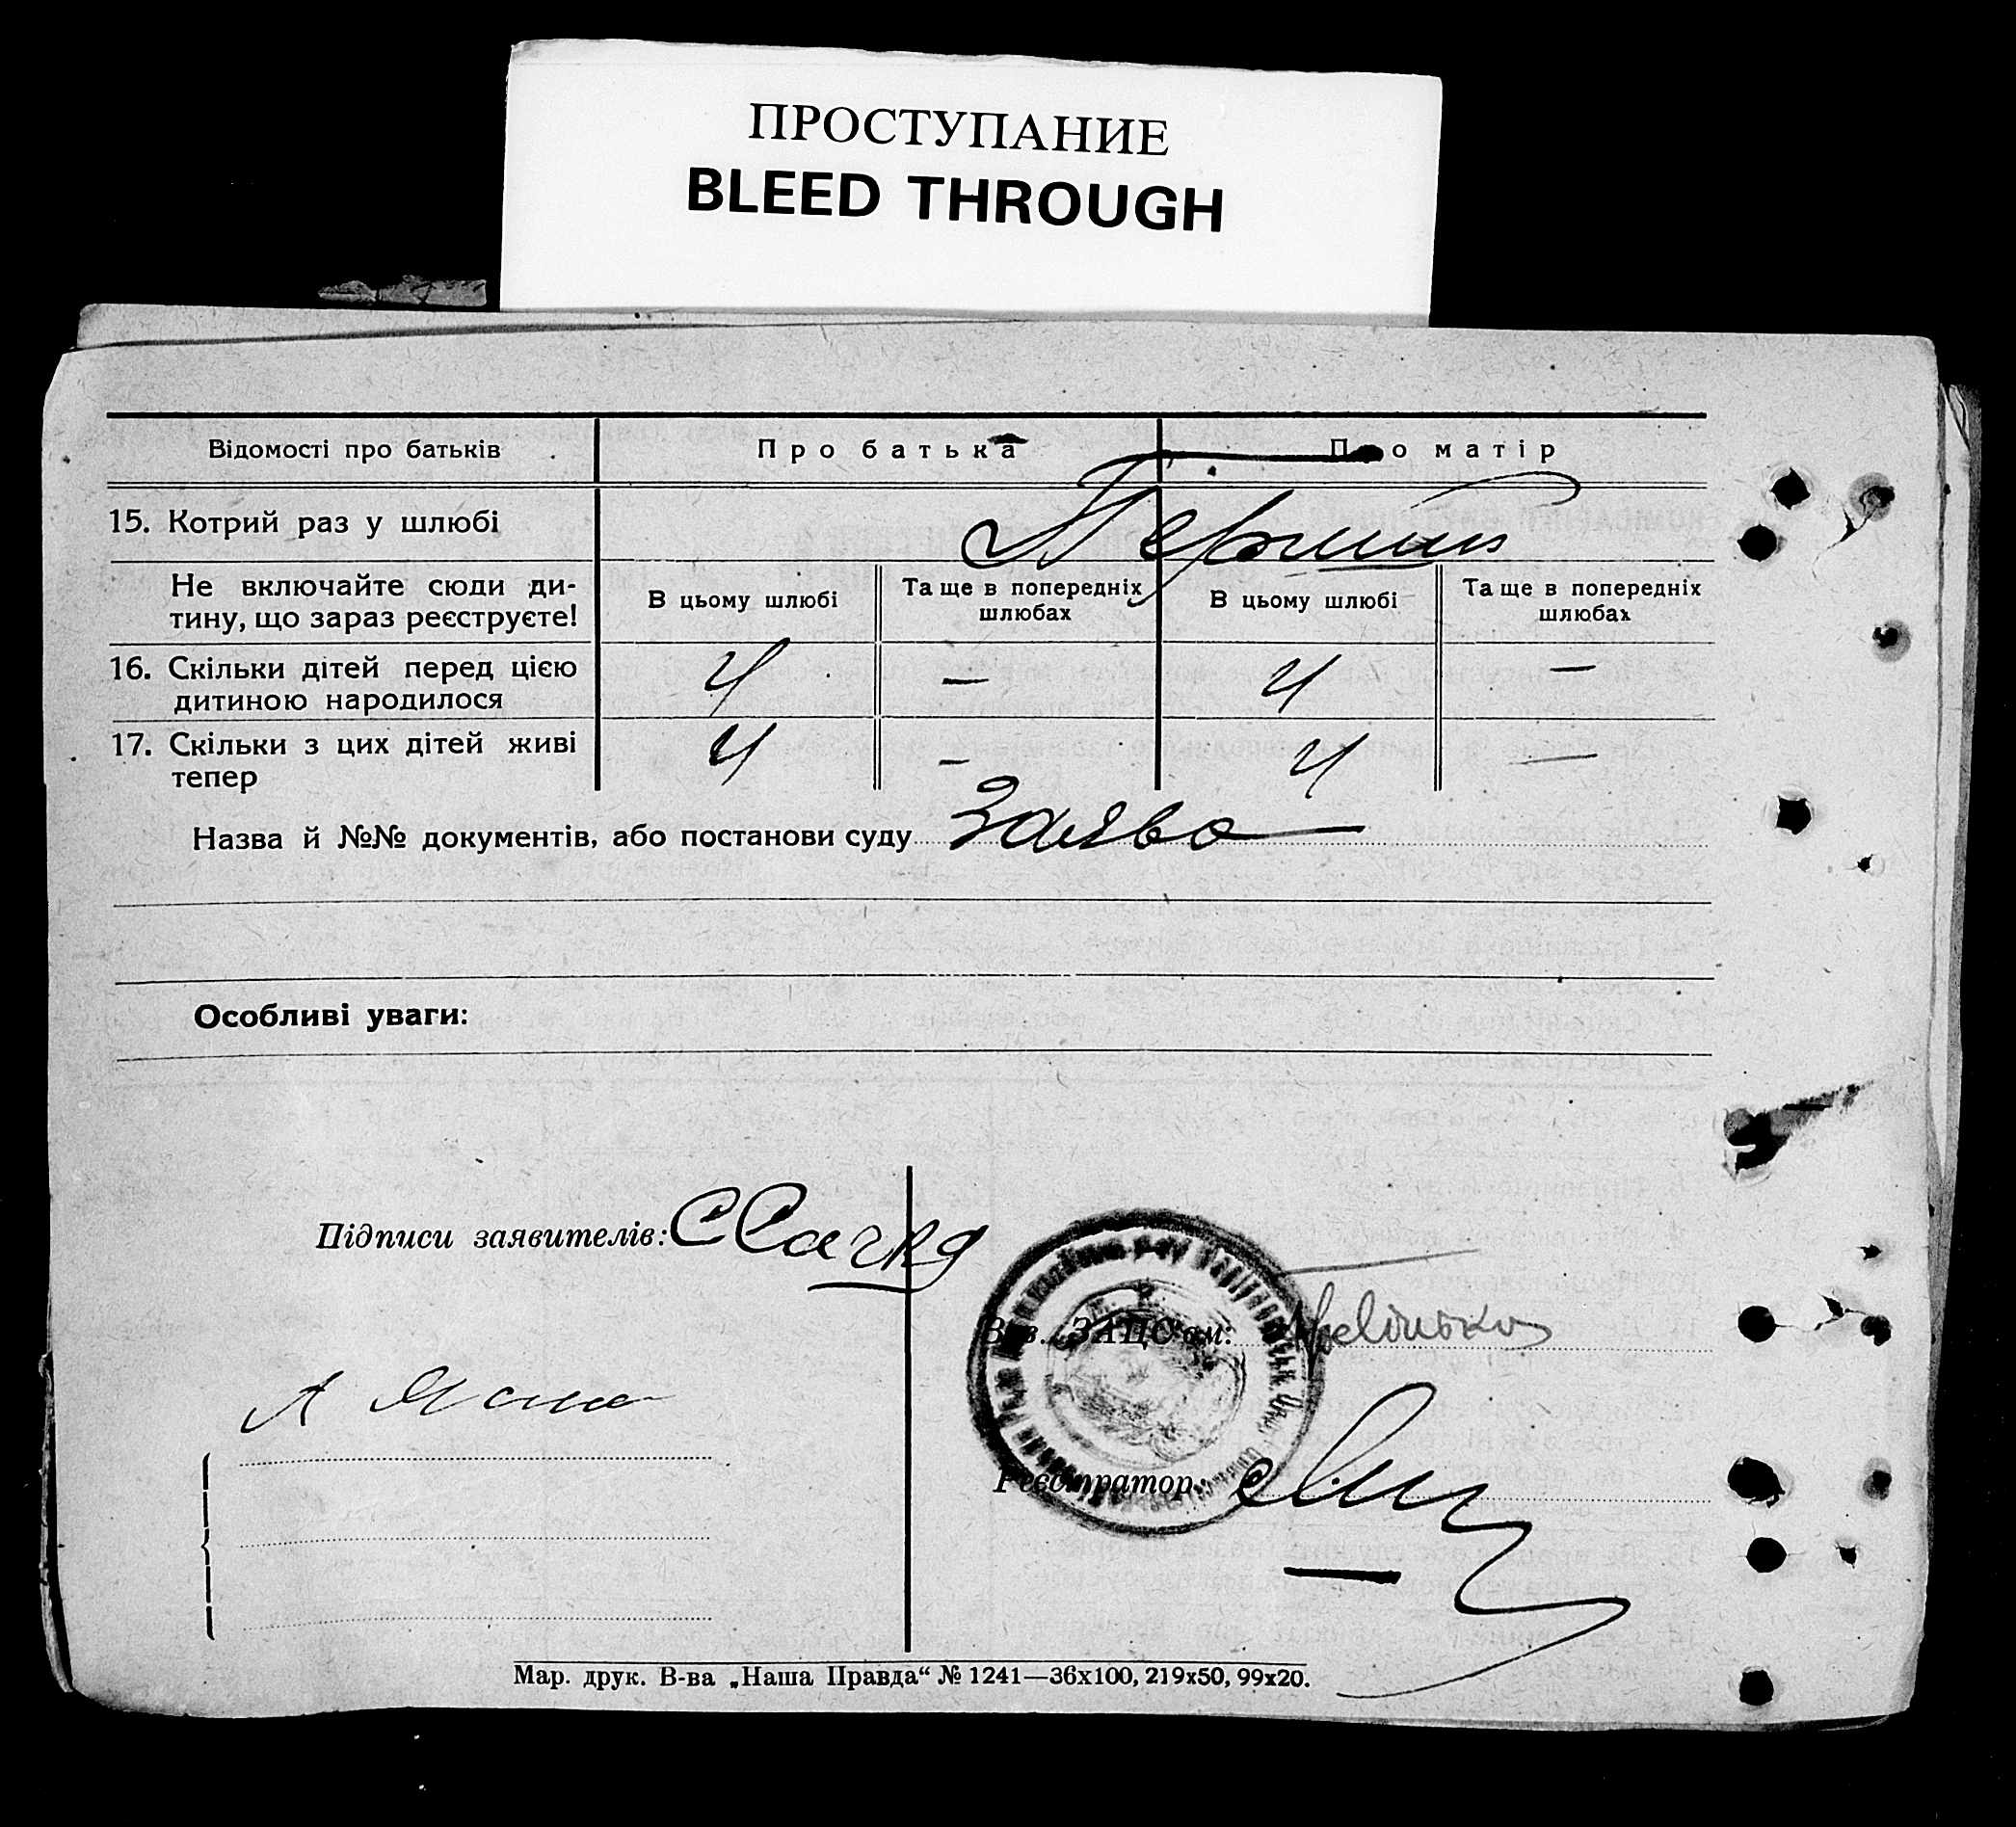 ПРОСТУПАНИЕ
BLEED THROUGH
Відомості про батьків Про батька Про матір
15. Котрий раз у шлюбі Перший
Не включайте сюди ди-
тину, що зараз реєструєте!
В цьому шлюбі Та ще в попередніх шлюбах В цьому шлюбі Та ще в попередніх шлюбах
16. Скільки дітей перед цією
дитиною народилося
4 — 4 —
17. Скільки з цих дітей живі
тепер
4 — 4 —
Назва й №№ документів, або постанови суду Заява
Особливі уваги:
Підписи заявителів:
Зав. ЗАЦС'ом:
Реєстратор:
Мар. друк. В-ва „Наша Правда“ № 1241—36х100, 219х50, 99х20.